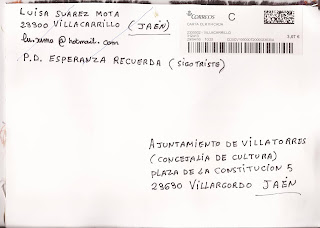 LUISA SUÁREZ MOTA
23300 VILLACARRILLO (JAÉN)
lu.sumo@hotmail.com
P.D. ESPERANZA RECUERDA (SIGOTRISTE)
CORREOS
C
CARTA CERTIFICADA
AJUNTAMIENTO DE VILLATORRES
(CONCEJALIA DE CULTURA)
PLAZA DE LA CONSTITUCION 5
23630 VILLARGORDO JAÉN